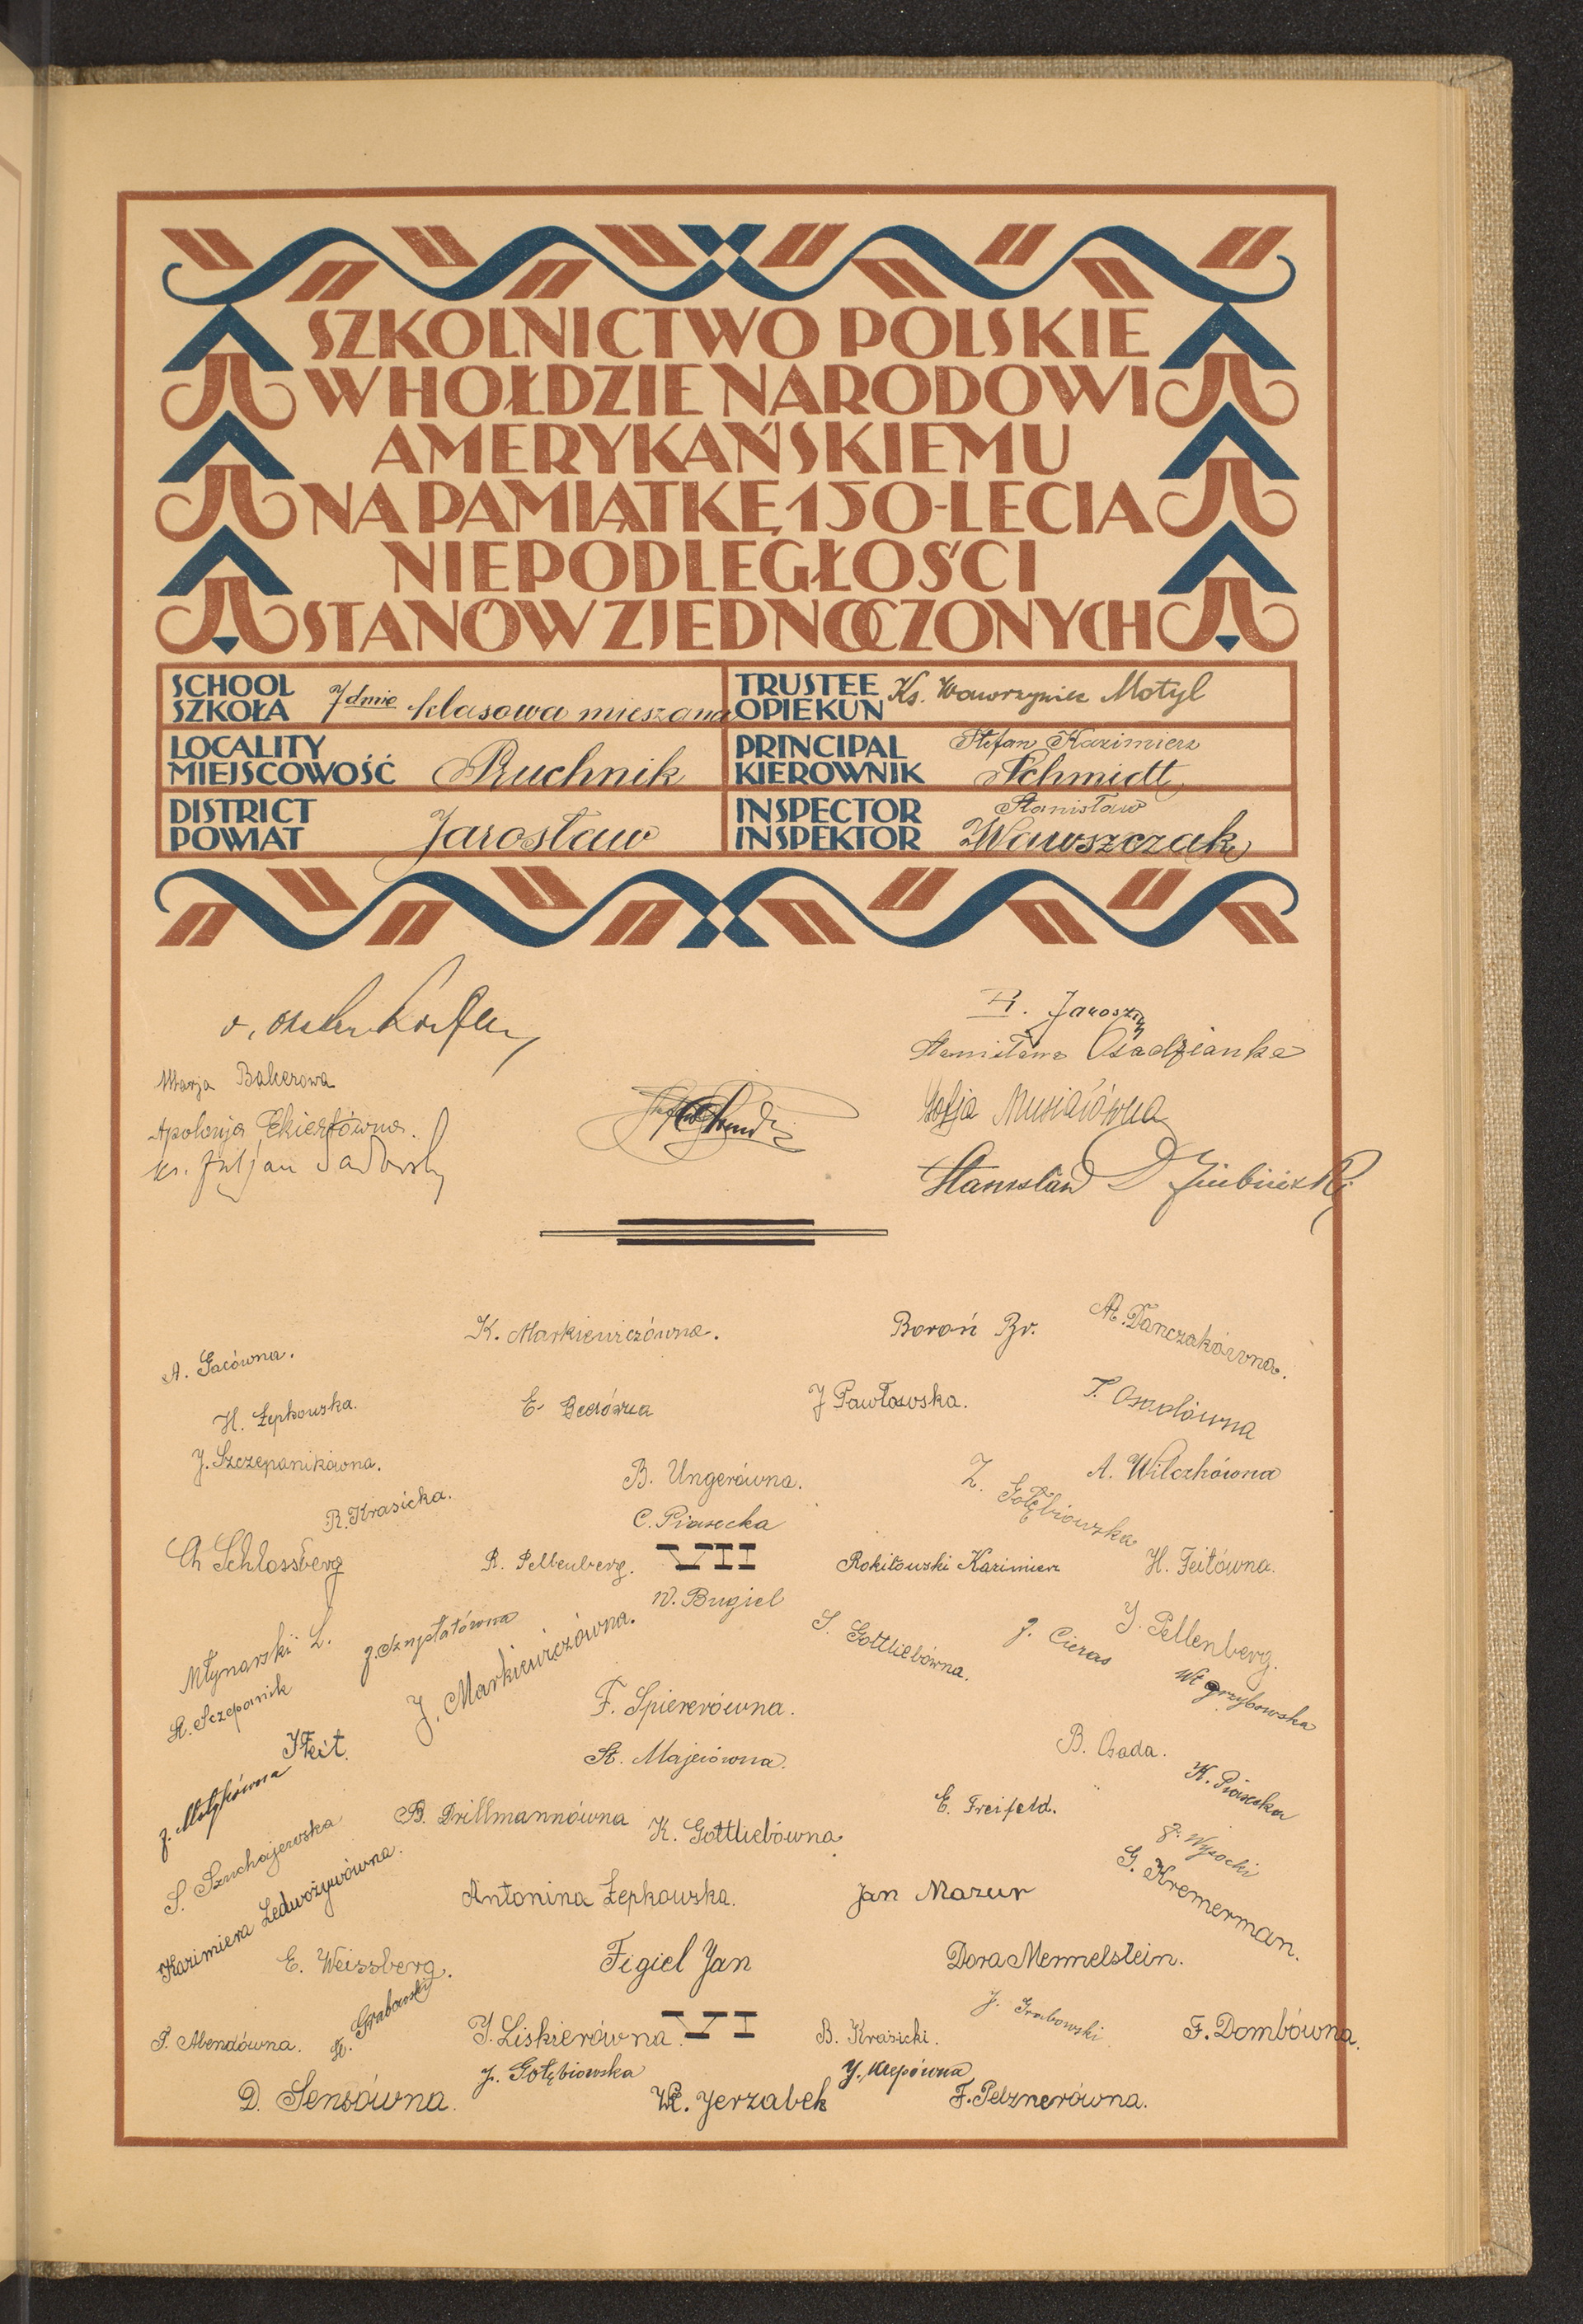 SZKOLNICTWO POLSKIE
W HOŁDZIE NARODOWI
AMERYKAŃSKIEMU
NA PAMIĄTKĘ 150-LECIA
NIEPODLEGŁOŚCI
STANÓW ZJEDNOCZONYCH
SCHOOL
SZKOŁA 7dmio klasowa mieszana
TRUSTEE
OPIEKUN Ks. Wawrzyniec Motyl
LOCALITY
MIEJSCOWOŚĆ Pruchnik
PRINCIPAL
KIEROWNIK Stefan Kazimierz
Schmidt
DISTRICT
POWIAT Jarosław
INSPECTOR
INSPEKTOR Stanisław
Wawszczak
Marja Bakerowa
Apolonja Ekiertówna.
ks. Juljan Sadowski
R. Jarosz
Stanisława Osadzianka
Zofja Musiałówna
Stanisław
K. Markiewiczówna.
Boroń Br.
M. Danczakówna.
A. Gacówna.
H. Łepkowska.
J Pawłowska.
T. Osadówna
J. Szczepanikówna.
B. Ungerówna.
A. Wilczkówna
Z. Gołębiowska
R. Krasicka.
C. Piasecka
Ch Schlossberg
R. Pellenberg.
VII
Rokitowski Kazimierz
H. Feitówna.
W. Bugiel
Młynarski L.
J. Markiewiczówna.
S. Gottliebówna.
J. Cieras
J. Pellenberg.
Wł Grzybowska
St. Szczepanik
F. Spiererówna.
J Feit.
St. Majciówna.
B. Osada.
K. Piasecka
J. Motykówna
B. Drillmannówna
K. Gottliebówna
E. Freifeld.
J. Wysocki
G. Kremerman.
S. Szuchajewska
Kazimiera Ledwożywówna.
Antonina Łepkowska.
Jan Mazur
E. Weissberg.
Figiel Jan
Dora Mermelstein.
St. Grabowski
J. Grabowski
T. Abendówna.
J. Liskierówna.
VI
B. Krasicki.
F. Dombówna.
J. Gołębiowska
J. Klepówna
D. Sensówna.
Wł. Jerzabek
F. Pelznerówna.